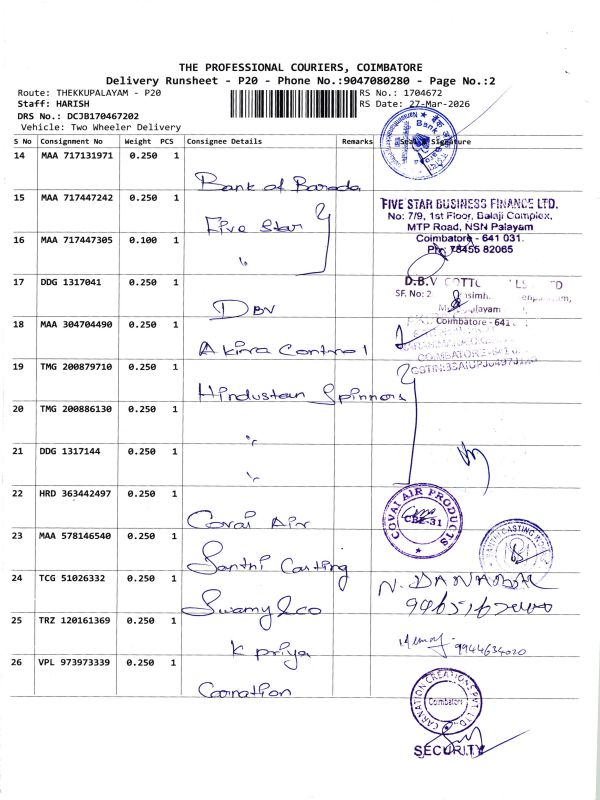 THE PROFESSIONAL COURIERS, COIMBATORE
Delivery Runsheet - P20 - Phone No.:9047080280 - Page No.:2
Route: THEKKUPALAYAM - P20 RS No.: 1704672
Staff: HARISH RS Date: 27-Mar-2026
DRS No.: DCJB170467202
Vehicle: Two Wheeler Delivery
S No Consignment No Weight PCS Consignee Details Remarks Seal & Signature
14 MAA 717131971 0.250 1
Bank of Baroda
Bank
15 MAA 717447242 0.250 1
Five Star
FIVE STAR BUSINESS FINANCE LTD.
No: 7/9, 1st Floor, Balaji Complex,
MTP Road, NSN Palayam
Coimbatore - 641 031.
Ph: 78455 82065
16 MAA 717447305 0.100 1
"
17 DDG 1317041 0.250 1
DBV
D.B.V COTT
SF. No: 2
Coimbatore - 641
18 MAA 304704490 0.250 1
Akira Control
COIMBATORE-641
19 TMG 200879710 0.250 1
Hindustan Spinners
20 TMG 200886130 0.250 1
"
21 DDG 1317144 0.250 1
"
22 HRD 363442497 0.250 1
Covai Air
COVAI AIR PRODUCTS
CBE-31
23 MAA 578146540 0.250 1
Santhi Casting
CASTING
24 TCG 51026332 0.250 1
Swamy & co
25 TRZ 120161369 0.250 1
K priya
9944634020
26 VPL 973973339 0.250 1
Coonation
CARVATION CREATIONS PVT LTD.
Coimbatore
SECURITY